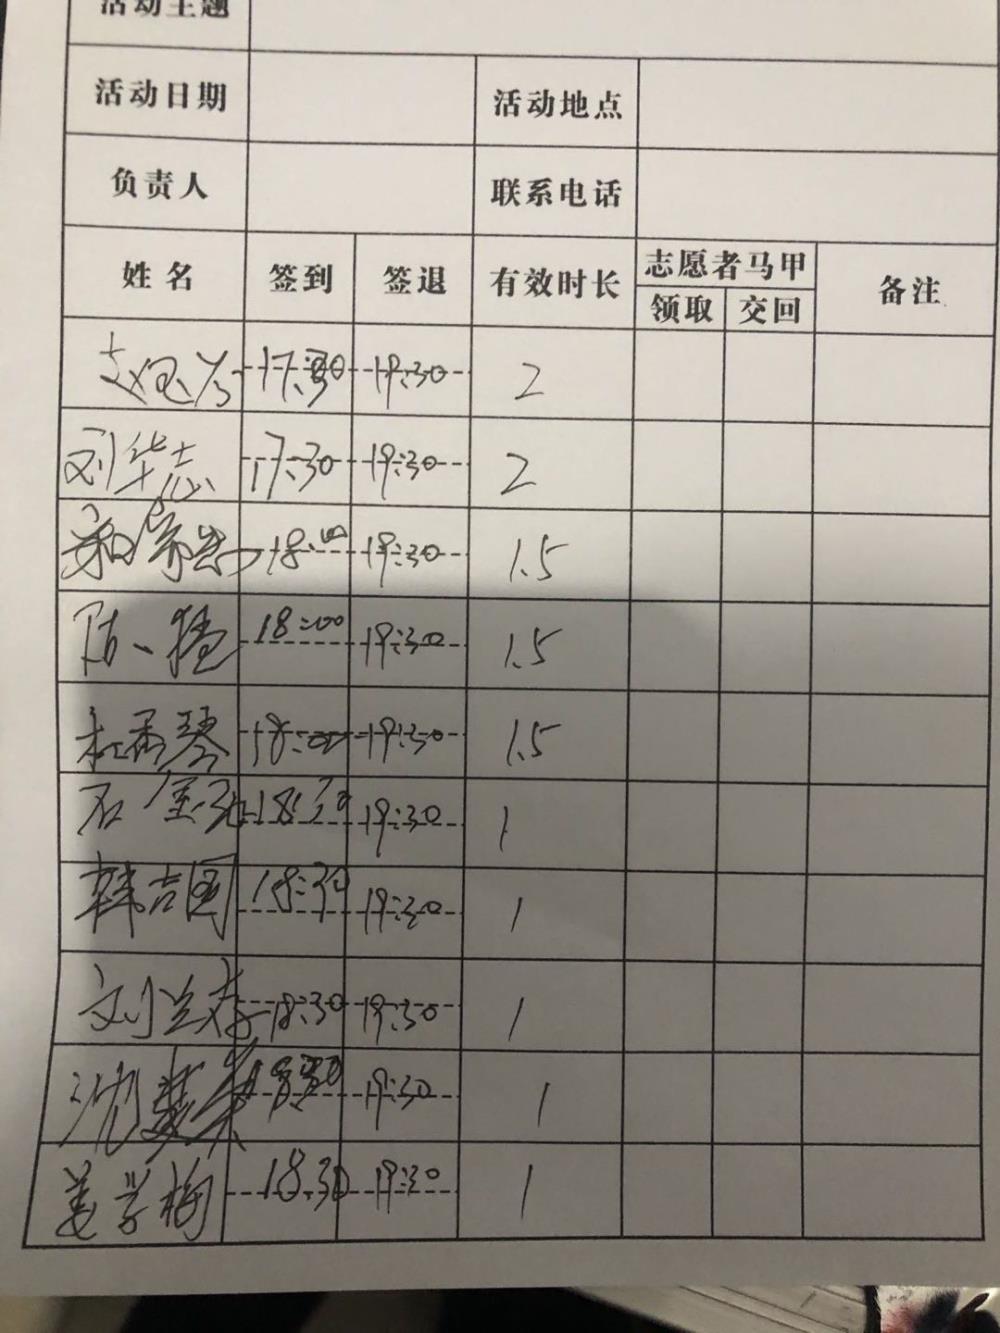 活动主题
活动日期 活动地点
负责人 联系电话
姓名 签到 签退 有效时长 志愿者马甲 备注
领取 交回
17:30 19:30 2
刘华志 17:30 19:30 2
18:00 19:30 1.5
陈 18:00 19:30 1.5
杜 琴 18:00 19:30 1.5
石 18:30 19:30 1
韩吉国 18:30 19:30 1
刘兰 18:30 19:30 1
沈 18:30 19:30 1
姜学梅 18:30 19:30 1